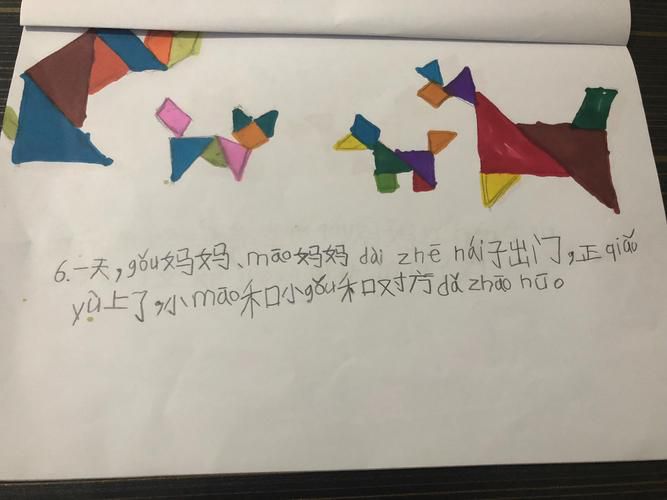 6.一天,gǒu妈妈、māo妈妈dài zhē hái子出门,正qiǎo
yù上了,小māo和小gǒu和对方dǎ zhāo hū。